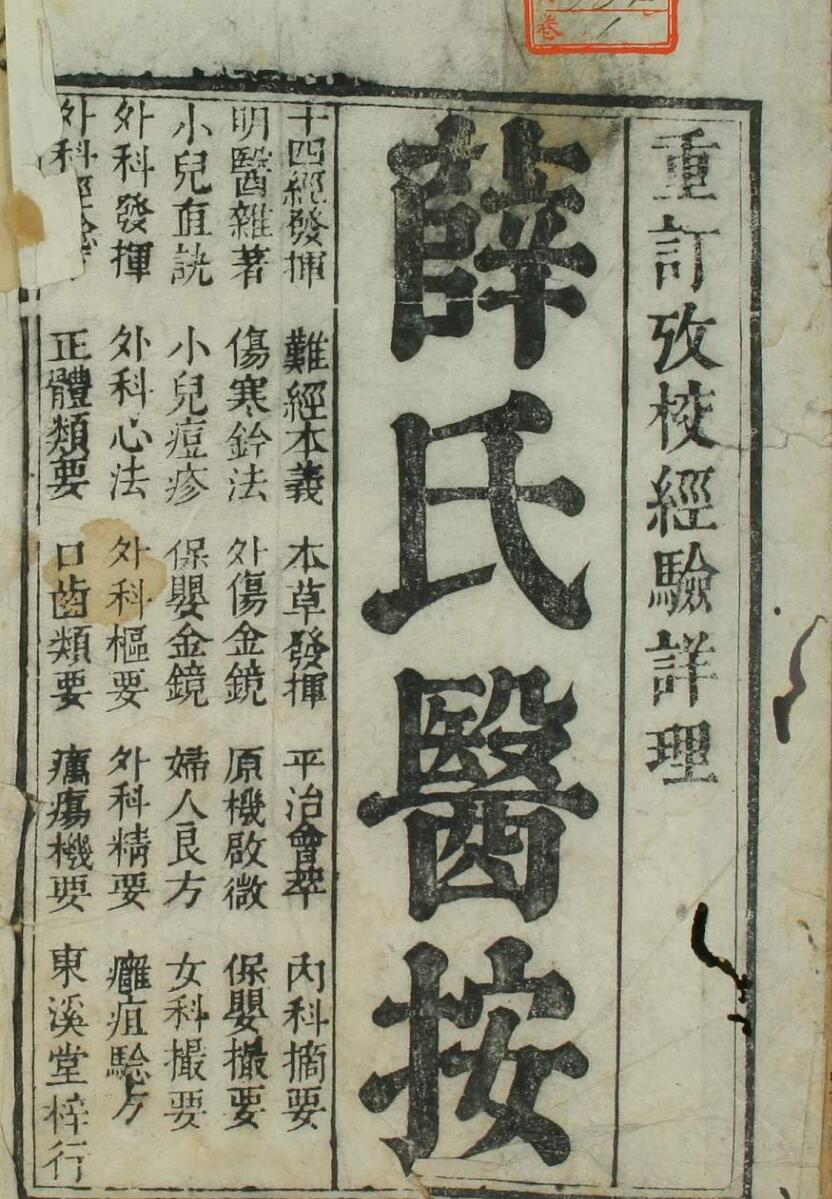 重訂攷校經驗詳理
薛氏醫按
十四經發揮 難經本義 本草發揮 平治會萃 內科摘要
明醫雜著 傷寒鈐法 外傷金鏡 原機啟微 保嬰撮要
小兒直訣 小兒痘疹 保嬰金鏡 婦人良方 女科撮要
外科發揮 外科心法 外科樞要 外科精要 癰疽驗方
外科經驗 正體類要 口齒類要 癘瘍機要 東溪堂梓行
卷 1